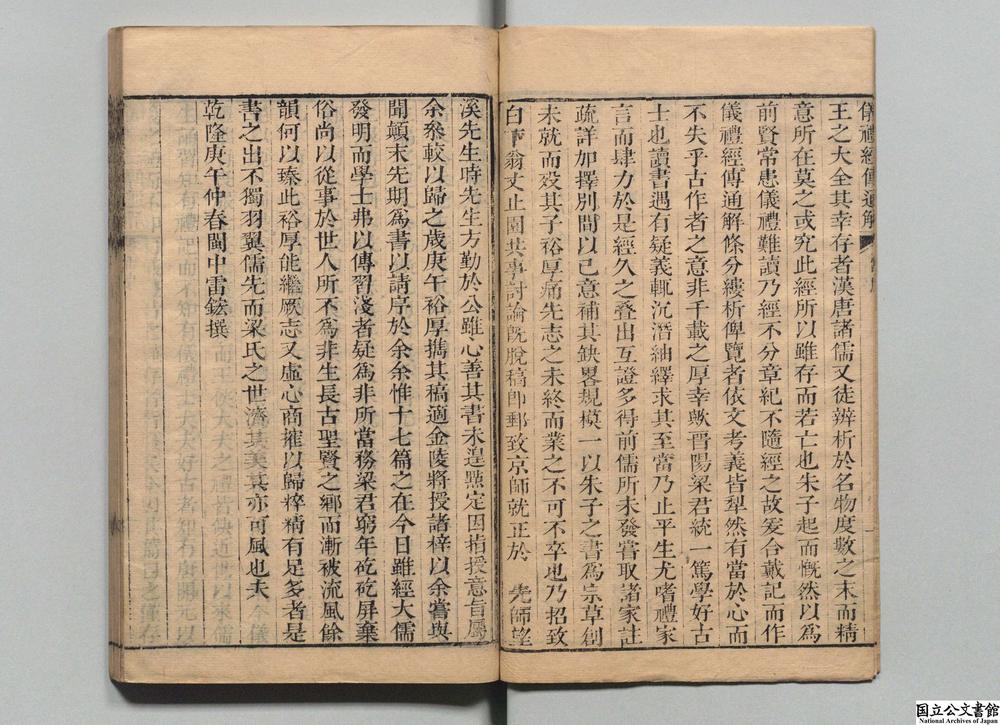 儀禮經傳通解
王之大全其幸存者漢唐諸儒又徒辨析於名物度數之末而精
意所在莫之或究此經所以雖存而若亡也朱子起而慨然以為
前賢常患儀禮難讀乃經不分章紀不隨經之故爰合戴記而作
儀禮經傳通解條分縷析俾覽者依文考義皆犁然有當於心而
不失乎古作者之意非千載之厚幸歟晋陽梁君統一篤學好古
士也讀書遇有疑義輒沉潛紬繹求其至當乃止平生尤嗜禮家
言而肆力於是經久之叠出互證多得前儒所未發嘗取諸家註
疏詳加擇別間以己意補其缺畧規模一以朱子之書為宗草創
未就而歿其子裕厚痛先志之未終而業之不可不卒也乃招致
白下翁丈止園共事討論旣脫稿卽郵致京師就正於 先師望
溪先生時先生方勤於公雖心善其書未遑㸃定因指授意旨屬
余叅較以歸之歲庚午裕厚攜其稿適金陵將授諸梓以余嘗與
聞顚末先期為書以請序於余余惟十七篇之在今日雖經大儒
發明而學士弗以傳習淺者疑為非所當務梁君窮年矻矻屏棄
俗尚以從事於世人所不為非生長古聖賢之鄉而漸被流風餘
韻何以臻此裕厚能繼厥志又虛心商搉以歸粹精有足多者是
書之出不獨羽翼儒先而梁氏之世濟其美其亦可風也夫
乾隆庚午仲春閩中雷鋐撰
国立公文書館
National Archives of Japan